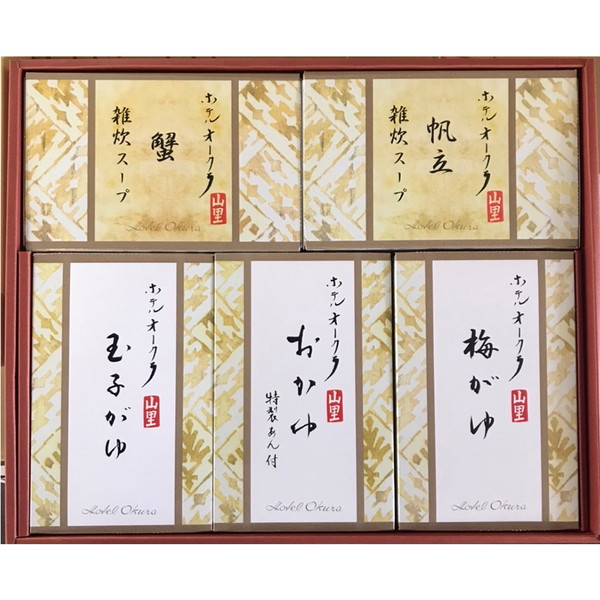 ホテルオークラ
山里
蟹
雑炊スープ
Hotel Okura
ホテルオークラ
山里
帆立
雑炊スープ
Hotel Okura
ホテルオークラ
山里
玉子がゆ
Hotel Okura
ホテルオークラ
山里
おかゆ
特製あん付
Hotel Okura
ホテルオークラ
山里
梅がゆ
Hotel Okura